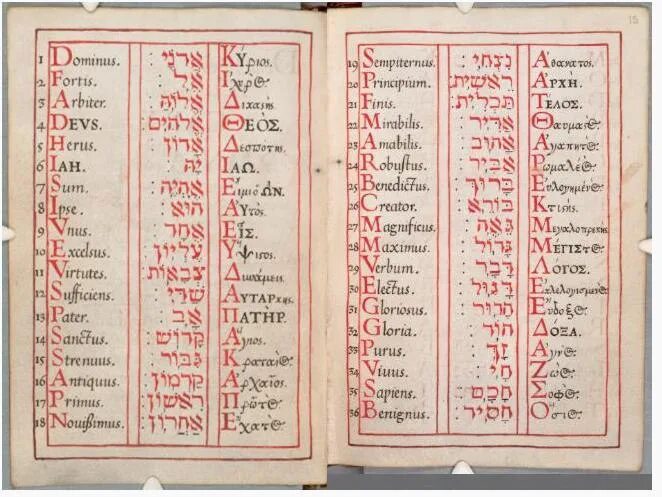 1 Dominus. אֲדֹנָי: Κύριος.
2 Fortis. אֵל: Ἰχερὸς.
3 Arbiter. אֱלוֹהַּ: Δικαςὴς
4 DEVS. אֱלֹהִים: ΘΕΌΣ.
5 Herus. אָדוֹן: Δεσποτης
6 IAH. יָהּ: ΙΑΩ.
7 Sum. אֶהְיֶה: Ειμι ὁ ὬΝ.
8 Ipse. הוּא: Ἀυτὸς.
9 Vnus. אֶחָד: ΕἿΣ.
10 Excelsus. עֶלְיוֹן: Ὕψιςος.
11 Virtutes. צְבָאוֹת: Δυνάμεις.
12 Sufficiens. שַׁדַּי: ΑΥΤΑΡκης.
13 Pater. אָב: ΠΑΤῊΡ.
14 Sanctus. קָדוֹשׁ: Ἅγιος.
15 Strenuus. גִּבּוֹר: Κραταιὸς.
16 Antiquus. קַדְמוֹן: Ἀρχαῖος.
17 Primus. רִאשׁוֹן: Πρῶτος.
18 Nouissimus. אַחֲרוֹן: Ἔχατος.
15
19 Sempiternus. נִצְחִי: Ἀθανατος.
20 Principium. רֵאשִׁית: ΑΡΧΗ.
21 Finis. תַּכְלִית: ΤΕΛΟΣ.
22 Mirabilis. אַדִּיר: Θαυμαςὸς.
23 Amabilis. אָהוּב: Αγαπητὸς.
24 Robustus. אַבִּיר: Ρωμαλέος.
25 Benedictus. בָּרוּךְ: Ευλογημένος.
26 Creator. בּוֹרֵא: Κτιςής.
27 Magnificus. גֵּאֶה: Μεγαλοπρεπής.
28 Maximus. גָּדוֹל: ΜΕΓΙΣΤος.
29 Verbum. דָּבָר: ΛΌΓΟΣ.
30 Electus. דָּגוּל: Εκλελογισμένος.
31 Gloriosus. הָדוּר: Ευδοξος.
32 Gloria. הוֹד: ΔΟΞΑ.
33 Purus. זַךְ: Ἁγνὸς.
34 Viuus. חַי: Ζῶς.
35 Sapiens. חָכָם: Σοφὸς.
36 Benignus. חָסִיד: Ὅσιος.